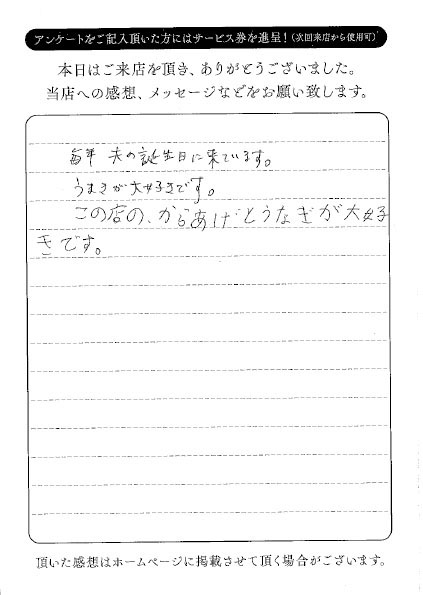 アンケートをご記入頂いた方にはサービス券を進呈！(次回来店から使用可)
本日はご来店を頂き、ありがとうございました。
当店への感想、メッセージなどをお願い致します。
毎年 夫の誕生日に来ています。
うまきが大好きです。
この店の、からあげとうなぎが大好
きです。
頂いた感想はホームページに掲載させて頂く場合がございます。